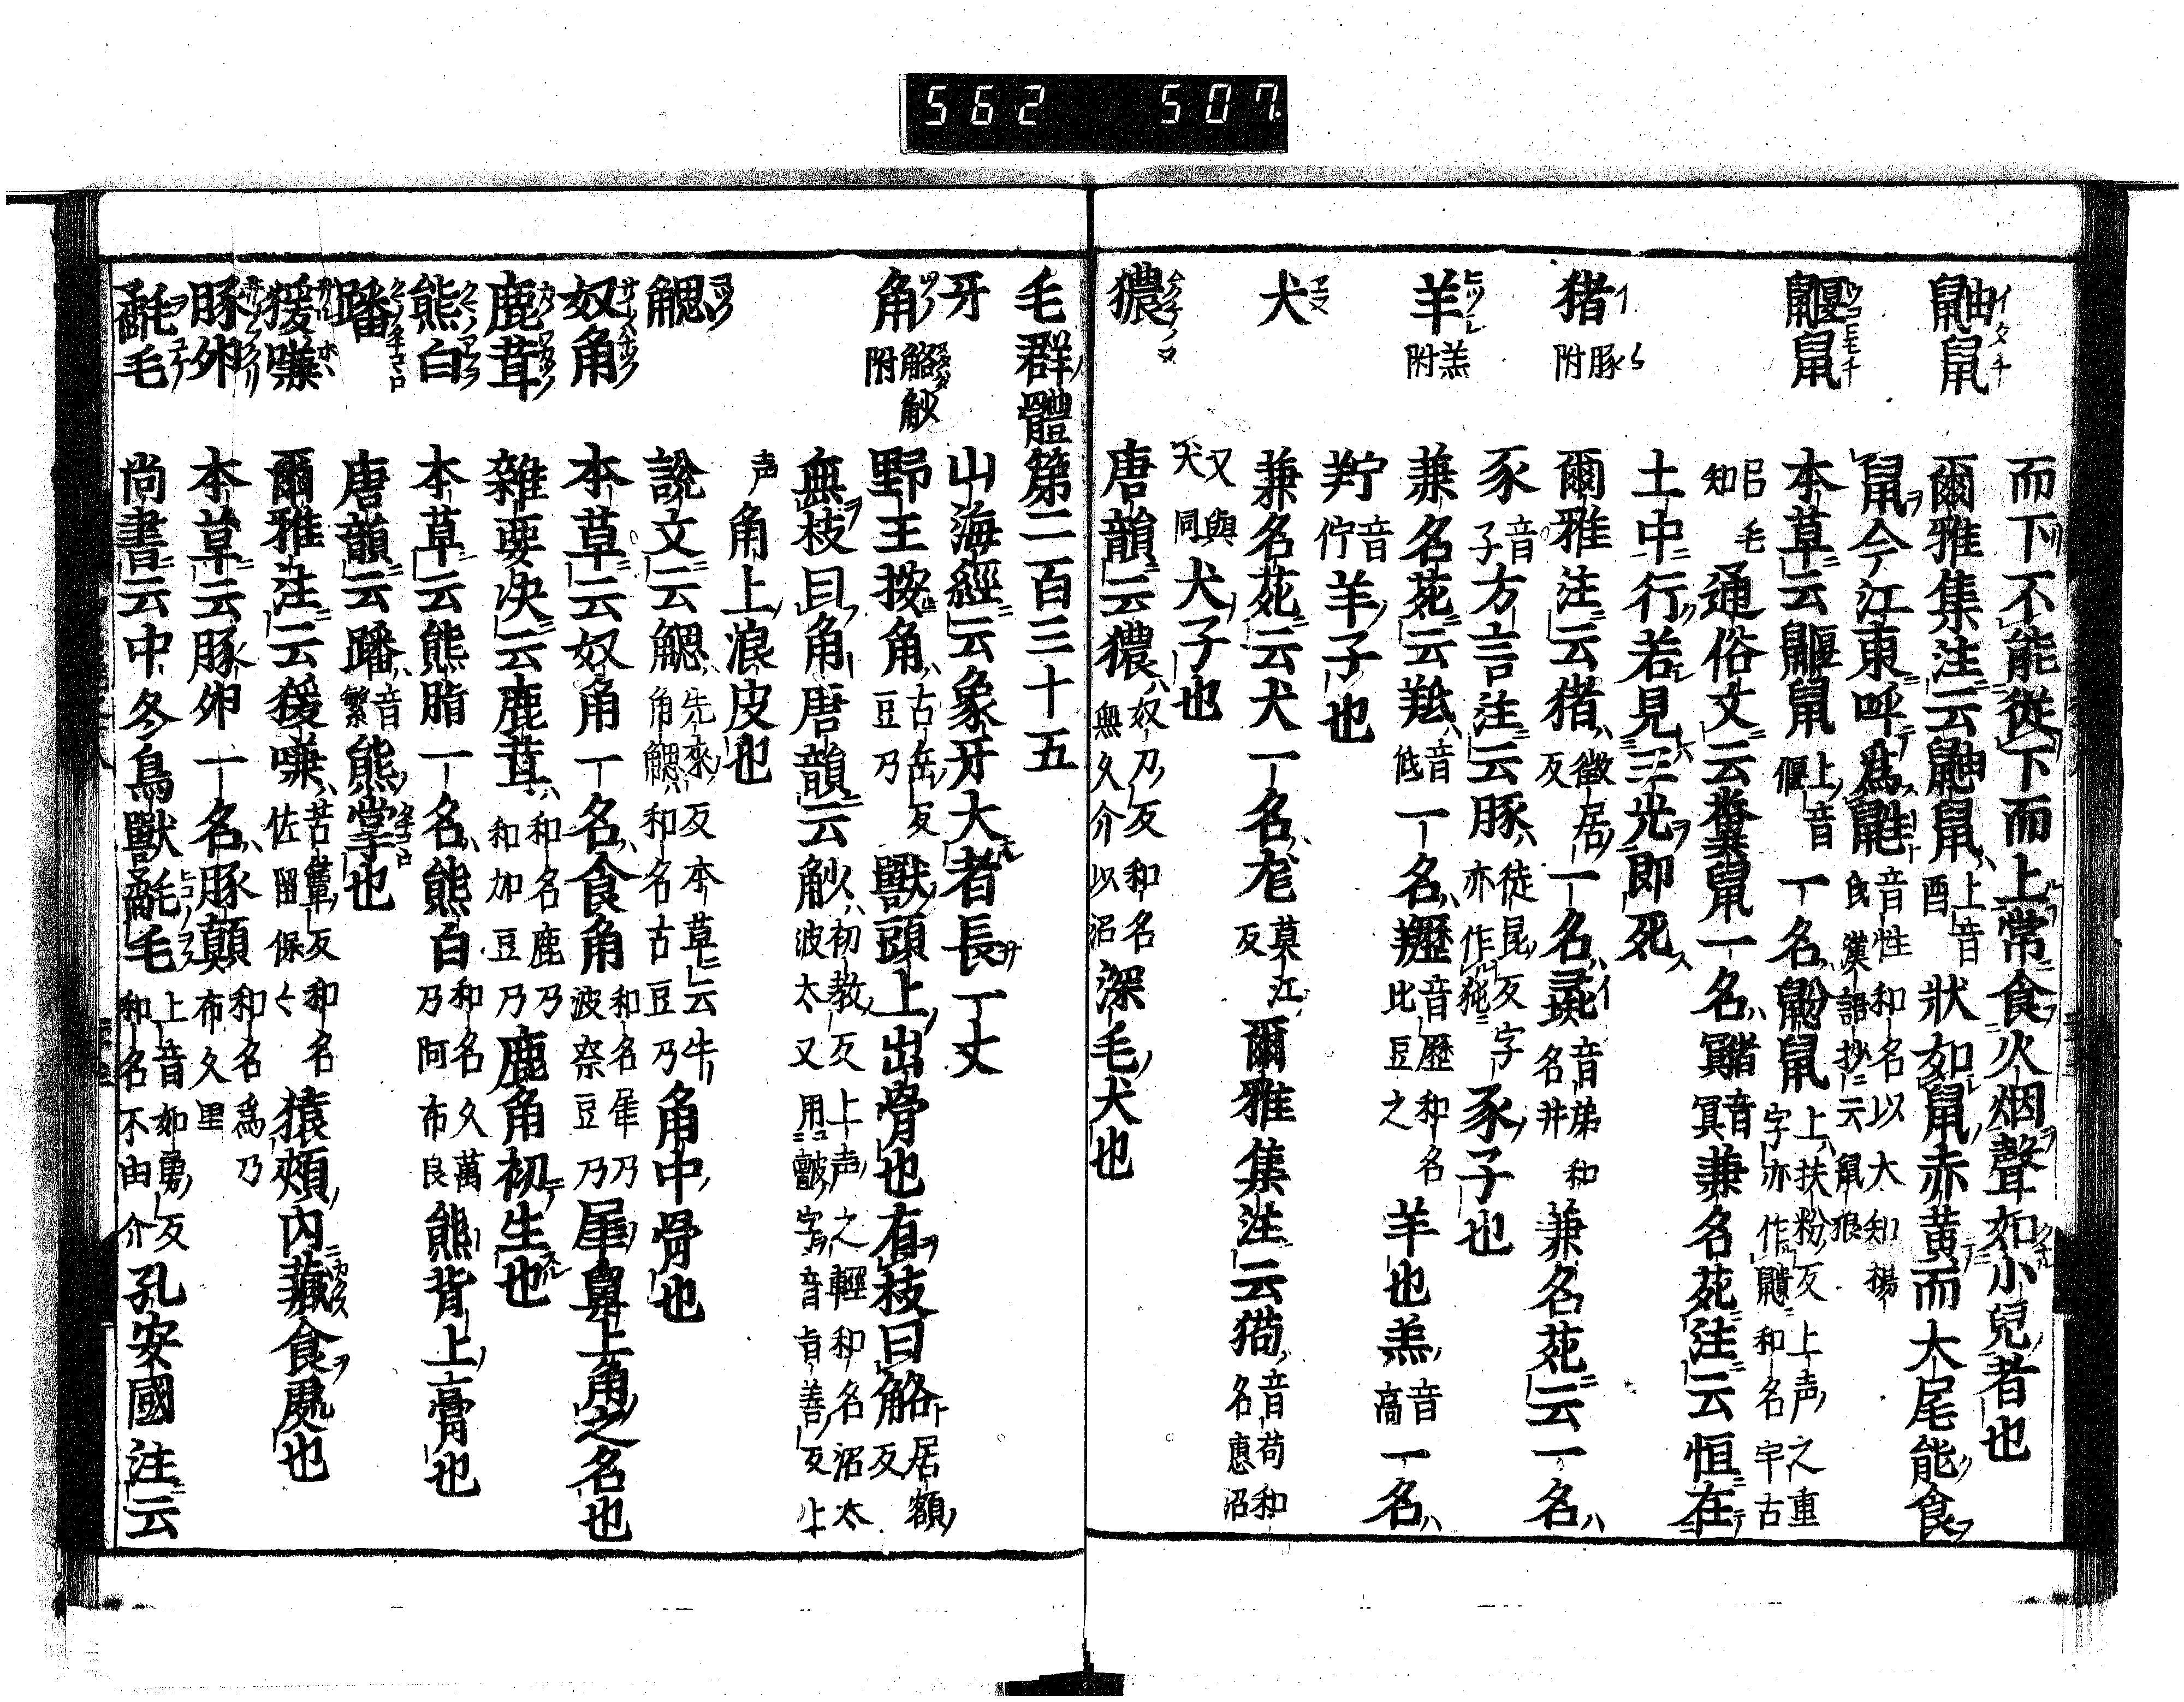 562 507
而下不能從下而上常食火烟聲如小兒者也
鼬鼠 爾雅集注云鼬鼠上音酉狀如鼠赤黄而大尾能食
鼠今江東呼爲鼪音性和名以大知楊氏漢語抄云鼠狼
鼴鼠 本草云鼴鼠上音偃一名鼢鼠上扶粉反上声之重字亦作鼲和名宇古
呂毛知通俗文云糞鼠一名音冥兼名苑注云恒在
土中行若見三光即死
猪 附豚 爾雅注云猪徴居反一名彘音弟和名井兼名苑云一名
豕音子方言注云豚徒昆反字亦作㹠豕子也
羊 附羔 兼名苑云羝音低一名䍽音歷和名比豆之羊也羔音高一名
羜音佇羊子也
犬 兼名苑云犬一名尨莫江反爾雅集注云猗音苟和名惠沼
又與犬同犬子也
獳 唐韻云獳奴刀反和名無久介以沼深毛犬也
毛群體第二百三十五
牙 山海經云象牙大者長一丈
角 觡觘附 野王按角古岳反豆乃獸頭上出骨也有枝曰觡居額反
無枝曰角唐韻云觘初教反上声之輕和名沼太波太又用皾字音旨善反上
声角上浪皮也
䚡 說文云䚡先來反本草云牛角䚡和名古豆乃角中骨也
奴角 本草云奴角一名食角和名犀乃波奈豆乃犀鼻上角之名也
鹿茸 雜要决云鹿茸和名鹿乃和加豆乃鹿角初生也
熊白 本草云熊脂一名熊白和名久萬乃阿布良熊背上膏也
蹯 唐韻云蹯音繁熊掌也
猨嗛 爾雅注云猨嗛苦簟反和名佐留保々猿頰内藏食處也
豚卵 本草云豚卵一名豚顛和名爲乃布久里
氄毛 尚書云中冬鳥獸氄毛上音如勇反和名不由介孔安國注云